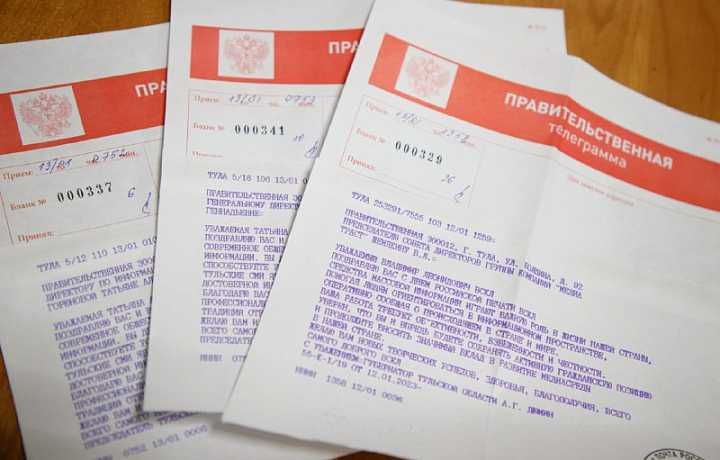 Прием: 13/01 час. 0752 мин.
Бланк № 000337
Принял:
ТУЛА 5/12 110 13/01 010
ПРАВИТЕЛЬСТВЕННАЯ 300
ДИРЕКТОРУ ПО ИНФОРМА
ГОРЮНОВОЙ ТАТЬЯНЕ АЛ
УВАЖАЕМАЯ ТАТЬЯ
ПОЗДРАВЛЯЮ ВАС И
СОВРЕМЕННОЕ ОБЩЕ
ИНФОРМАЦИИ. ВЫ
СПОСОБСТВУЕТЕ
ТУЛЬСКИЕ СМИ ЯВ
ДОСТОВЕРНОЙ И
БЛАГОДАРЮ ВАС
ПРОФЕССИОНАЛ
ТРАДИЦИИ ОТР
ЖЕЛАЮ ВАМ И
ВСЕГО САМОГО
ПРЕДСЕДАТЕЛЬ ТУЛЬСКО
НННН 0752 13/01 0006
ПРАВ
Прием: 13/01 час. 0753
Бланк № 000341
ТУЛА 5/16 106 13/01
ПРАВИТЕЛЬСТВЕННАЯ 300
ГЕНЕРАЛЬНОМУ ДИРЕКТ
ГЕННАДЬЕВНЕ:
УВАЖАЕМАЯ ТАТЬЯНА
ПОЗДРАВЛЯЮ ВАС И
СОВРЕМЕННОЕ ОБЩЕ
ИНФОРМАЦИИ. ВЫ
СПОСОБСТВУЕТЕ
ТУЛЬСКИЕ СМИ
ДОСТОВЕРНОЙ И
БЛАГОДАРЮ ВАС
ПРОФЕССИОНА
ТРАДИЦИИ ОТР
ЖЕЛАЮ ВАМ И
ВСЕГО САМО
ПРЕДСЕДАТЕ
НННН 075
ПРАВИТЕЛЬСТВЕННАЯ
телеграмма
Прием: 13/01 час. 1358
Бланк № 000329
Принял:
ТУЛА 253291/7555 103 12/01 1259:
ПРАВИТЕЛЬСТВЕННАЯ 300012, Г. ТУЛА, УЛ. Д. 92
ПРЕДСЕДАТЕЛЮ СОВЕТА ДИРЕКТОРОВ ГРУППЫ КОМПАНИЙ "МЕДИА
ТРАСТ" В.Л.:
УВАЖАЕМЫЙ ВЛАДИМИР ЛЕОНИДОВИЧ ВСКЛ
ПОЗДРАВЛЯЮ ВАС С ДНЕМ РОССИЙСКОЙ ПЕЧАТИ ВСКЛ
СРЕДСТВА МАССОВОЙ ИНФОРМАЦИИ ИГРАЮТ ВАЖНУЮ РОЛЬ В ЖИЗНИ НАШЕЙ СТРАНЫ,
ПОМОГАЯ ЛЮДЯМ ОРИЕНТИРОВАТЬСЯ В ИНФОРМАЦИОННОМ ПРОСТРАНСТВЕ,
ОПЕРАТИВНО СООБЩАЯ О ПРОИСХОДЯЩЕМ В СТРАНЕ И МИРЕ.
ВАША РАБОТА ТРЕБУЕТ ОБ"ЕКТИВНОСТИ, ВЗВЕШЕННОСТИ И ЧЕСТНОСТИ.
УВЕРЕН, ЧТО ВЫ И ВПРЕДЬ БУДЕТЕ СОХРАНЯТЬ АКТИВНУЮ ГРАЖДАНСКУЮ ПОЗИЦИЮ
И ПРОДОЛЖИТЕ ВНОСИТЬ ЗНАЧИМЫЙ ВКЛАД В РАЗВИТИЕ МЕДИАСРЕДЫ
В НАШЕЙ СТРАНЕ.
ЖЕЛАЮ ВАМ НОВЫХ ТВОРЧЕСКИХ УСПЕХОВ, ЗДОРОВЬЯ, БЛАГОПОЛУЧИЯ, ВСЕГО
САМОГО ДОБРОГО ВСКЛ
С УВАЖЕНИЕМ:ГУБЕРНАТОР ТУЛЬСКОЙ ОБЛАСТИ А.Г. ДЮМИН
55-К-1/19 ОТ 12.01.2023-
НННН 1358 12/01 0036
ПОЧТА РОС